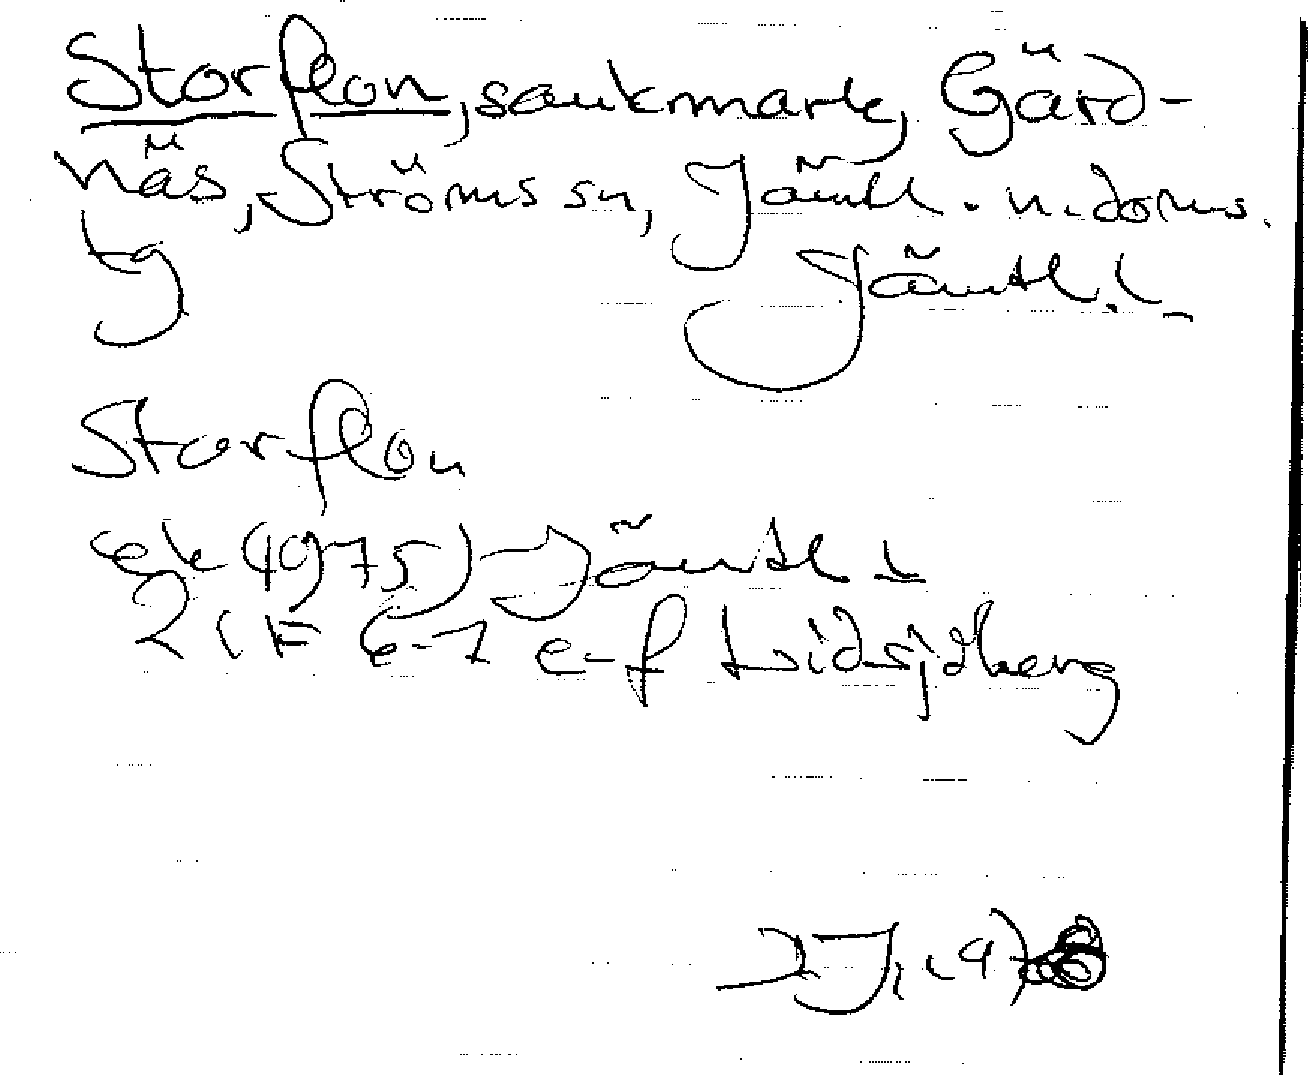 Storflon, sankmark, Gärd-
näs, Ströms sn, Jämtl. n. doms.
Jämtl. l.
Storflon
ek (1975) Jämtl l
22 F 6-7 e-f Lidsjöberg